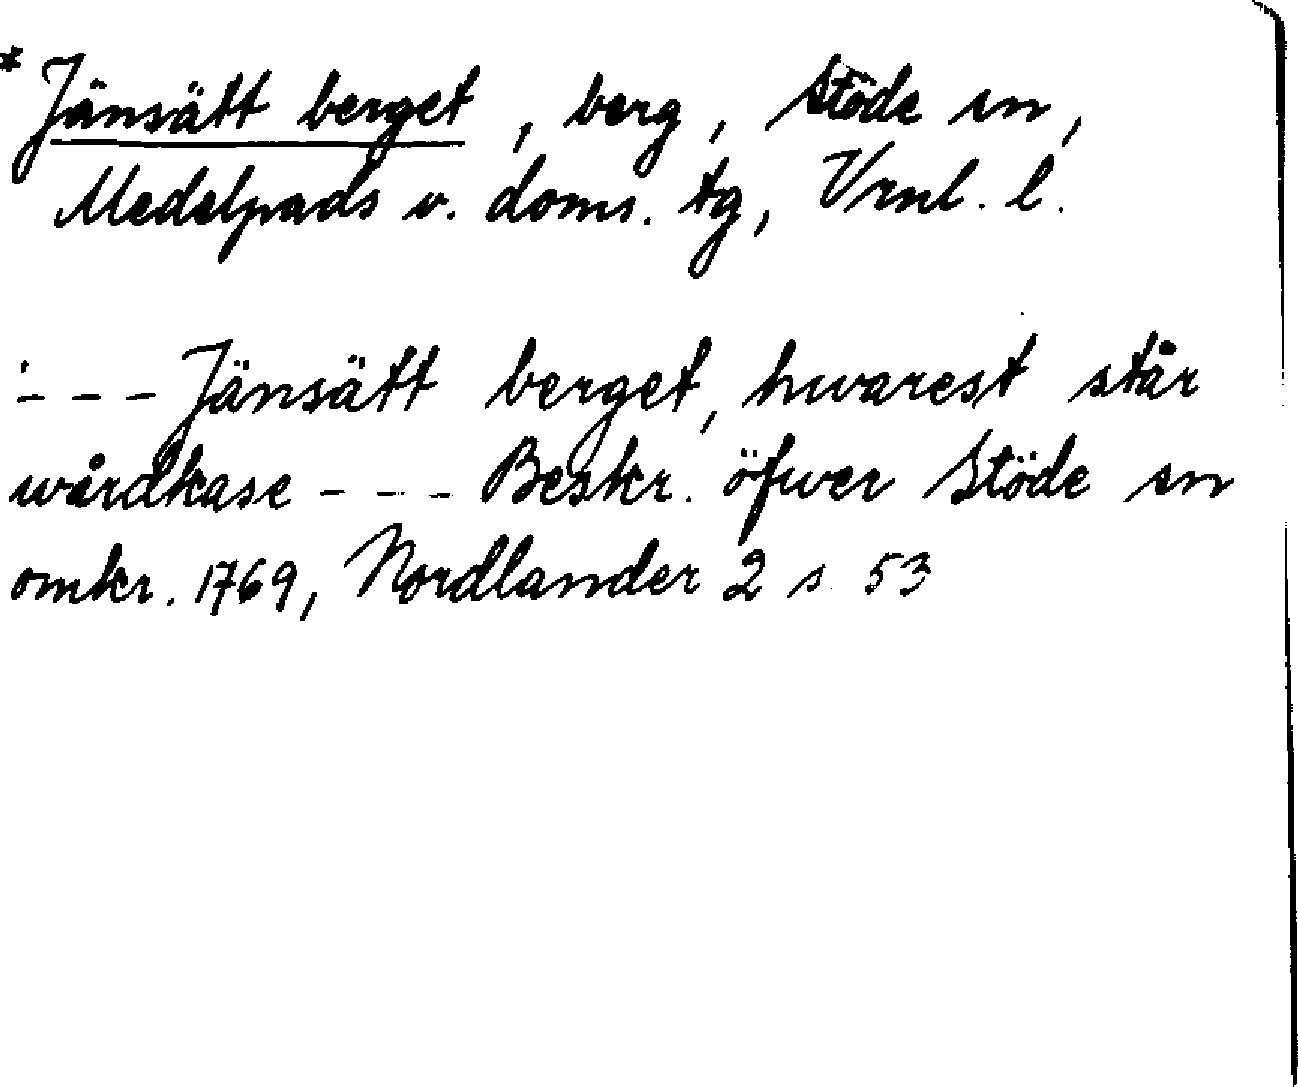 * Jänsätt berget, berg, Stöde sn,
Medelpads v. doms. tg, Vrnl. l.
- - - Jänsätt berget, hwarest står
wårdkase - - - Beskr. öfwer Stöde sn
omkr. 1769, Nordlander 2 s. 53